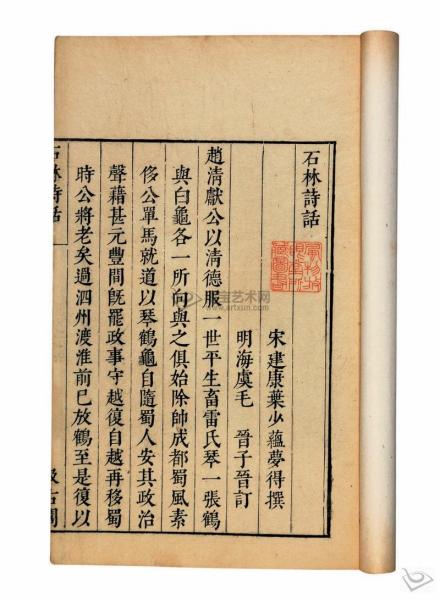 石林詩話
宋建康葉少蘊夢得撰
明海虞毛　晉子晉訂
趙清獻公以清德服一世平生畜雷氏琴一張鶴
與白龜各一所向與之俱始除帥成都蜀風素
侈公單馬就道以琴鶴龜自隨蜀人安其政治
聲藉甚元豐間旣罷政事守越復自越再移蜀
時公將老矣過泗州渡淮前已放鶴至是復以
石林詩話
汲古閣
www.artxun.com